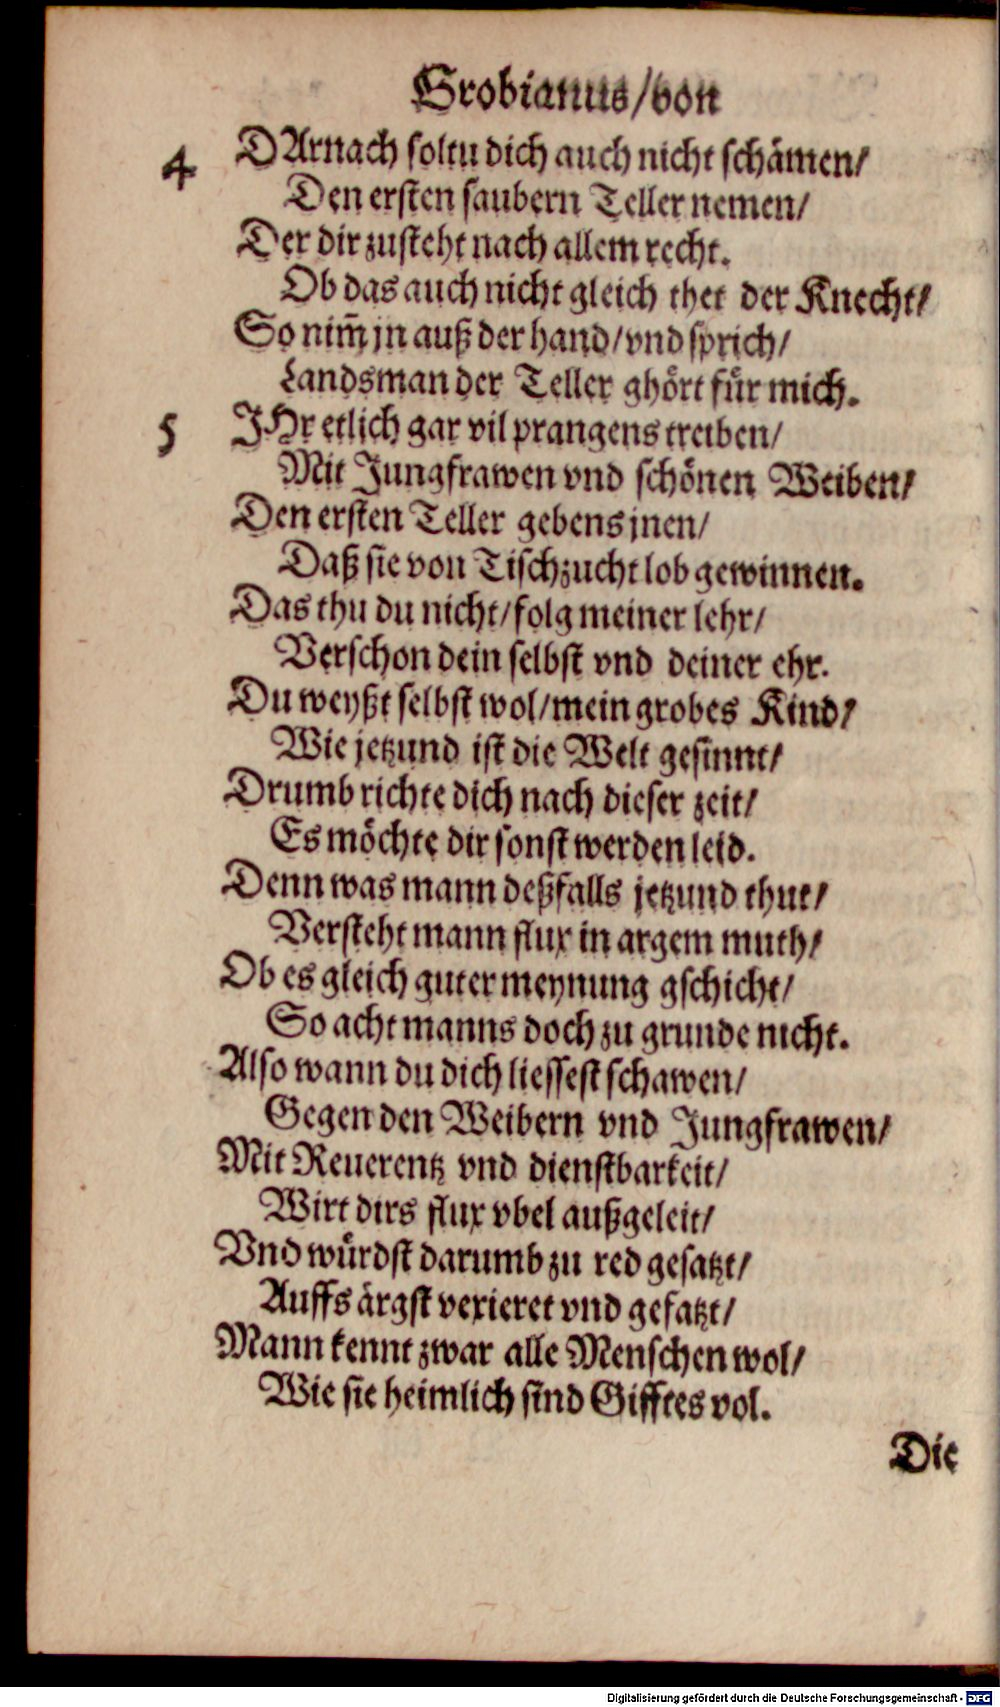 Grobianus/von
4 DArnach soltu dich auch nicht schämen/
Den ersten saubern Teller nemen/
Der dir zusteht nach allem recht.
Ob das auch nicht gleich thet der Knecht/
So nim̃ jn auß der hand/vnd sprich/
Landsman der Teller ghört für mich.
5 JHr etlich gar vil prangens treiben/
Mit Jungfrawen vnd schönen Weiben/
Den ersten Teller gebens jnen/
Daß sie von Tischzucht lob gewinnen.
Das thu du nicht/folg meiner lehr/
Verschon dein selbst vnd deiner ehr.
Du weyßt selbst wol/mein grobes Kind/
Wie jetzund ist die Welt gesinnt/
Drumb richte dich nach dieser zeit/
Es möchte dir sonst werden leid.
Denn was mann deßfalls jetzund thut/
Versteht mann flux in argem muth/
Ob es gleich guter meynung gschicht/
So acht manns doch zu grunde nicht.
Also wann du dich liessest schawen/
Gegen den Weibern vnd Jungfrawen/
Mit Reuerentz vnd dienstbarkeit/
Wirt dirs flux vbel außgeleit/
Vnd würdst darumb zu red gesatzt/
Auffs ärgst vexieret vnd gefatzt/
Mann kennt zwar alle Menschen wol/
Wie sie heimlich sind Gifftes vol.
Die
Digitalisierung gefördert durch die Deutsche Forschungsgemeinschaft - DFG